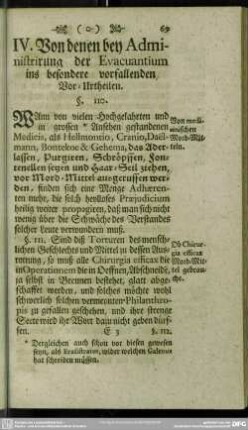 ( o ) 69
IV. Von denen bey Admi-
nistrirung der Evacuantium
ins besondere vorfallenden
Vor-Urtheilen.
§. 110.
Wann von vielen Hochgelahrten und
in grossen Ansehen gestandenen
Medicis, als Hellmontio, Cranio, Däel-
mann, Bontekoe & Gehema, das Ader-
lassen, Purgiren, Schröpffen, Fon-
tenellen setzen und Haar-Seil ziehen,
vor Mord-Mittel ausgeruffen wer-
den, finden sich eine Menge Adhæren-
ten mehr, die solch heyloses Præjudicium
heftig weiter propagiren, daß man sich nicht
wenig über die Schwäche des Verstandes
solcher Leute verwundern muß.
Von
Mord-Mit-
teln.
§. 111. Sind diß Torturen des mensch-
lichen Geschlechtes und Mittel zu dessen Aus-
rottung, so muß alle Chirurgia efficax die
in Operationen die in Oeffnen, Abschneide,
ja selbst in Brennen bestehet, glatt abge-
schaffet werden, und solches möchte wohl
schwerlich solchen vermeynten Philanthro-
pis zu gefallen geschehen, und ihre strenge
Secte wird ihr Wort dazu nicht geben dürf-
fen.
Ob Chirur-
gia efficax
Mord-Mit-
tel gebrau-
che.
E 3 §. 112.
* Dergleichen auch schon vor diesen gewesen
seyn, als Erasistratus, wider welchen Galenus
hat schreiben müssen.